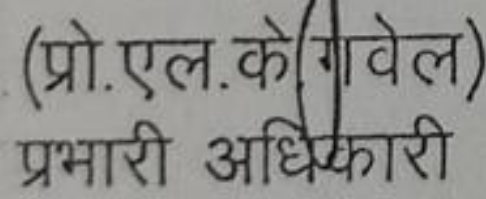 (प्रो.एल.के.गवेल)
प्रभारी अधिकारी